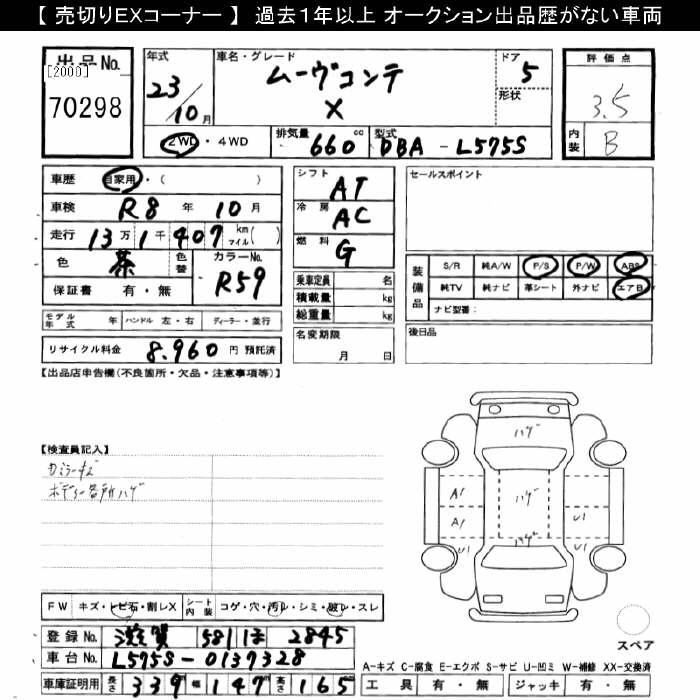 【 売切りEXコーナー 】 過去1年以上 オークション出品歴がない車両
出品No.
[2000]
70298
年式
23/10月
車名・グレード
ムーヴコンテ
X
ドア
5
形状
評価点
3.5
内装
B
2WD・4WD
排気量 660 cc
型式 DBA - L575S
車歴 自家用・( )
車検 R8 年 10 月
走行 13万 1千 407 km マイル( )
色 茶 色替 カラーNo. R59
保証書 有・無
シフト AT
冷房 AC
燃料 G
乗車定員 名
積載量 kg
総重量 kg
セールスポイント
装備品
S/R 純A/W P/S P/W ABS
純TV 純ナビ 革シート 外ナビ エアB
ナビ型番:
モデル年式 年 ハンドル 左・右 ディーラー・並行
リサイクル料金 8,960 円 預託済
名変期限
月 日
後日品
【出品店申告欄(不良箇所・欠品・注意事項等)】
【検査員記入】
カミラーキズ
ボディー各所ハゲ
ハゲ
ハゲ
A1
A1
U1
U1
U1
FW キズ・トビ石・割レX シート内装 コゲ・穴・汚レ・シミ・破レ・スレ
登録No. 滋賀 581 ほ 2845
車台No. L575S-0137328
車庫証明用 長さ 339 幅 147 高さ 165
スペア
A-キズ C-腐食 E-エクボ S-サビ U-凹ミ W-補修 XX-交換済
工具 有・無 ジャッキ 有・無